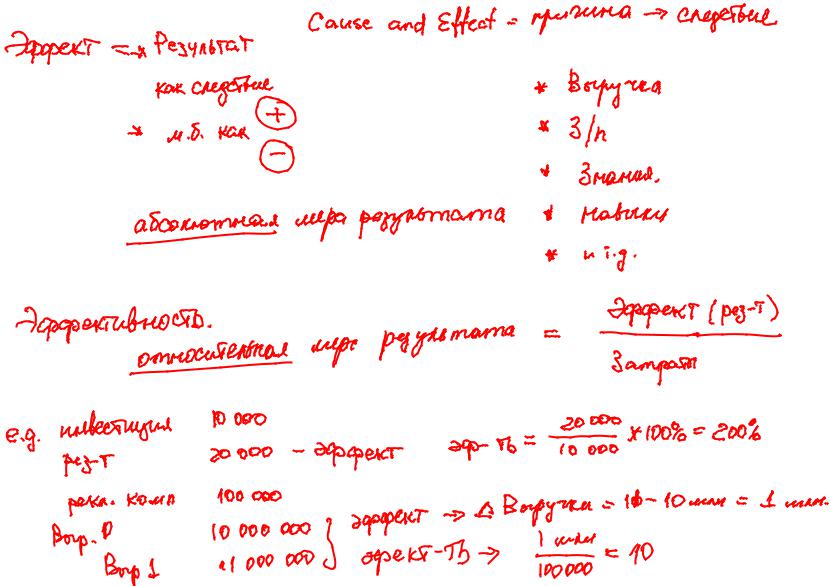 Cause and Effect = причина → следствие
Эффект ⇒ * Результат
как следствие
* м.б. как + −
* Выручка
* З/п
* Знания.
* Навыки
* и т.д.
абсолютная мера результата
Эффективность.
относительная мера результата = Эффект (рез-т) / Затраты
e.g. инвестиция 10 000
рез-т 20 000 – эффект эф-ть = 20 000 / 10 000 * 100% = 200%
рекл. комп 100 000
Выр. 0 10 000 000 } эффект → Δ Выручка = 11 - 10 млн = 1 млн.
Выр 1 11 000 000 } эфект-ть → 1 млн / 100000 = 10